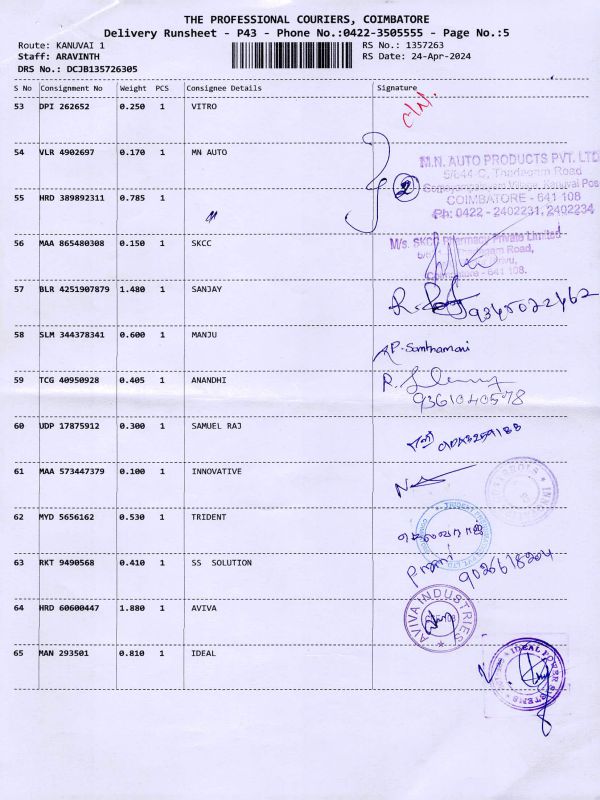 THE PROFESSIONAL COURIERS, COIMBATORE
Delivery Runsheet - P43 - Phone No.:0422-3505555 - Page No.:5
Route: KANUVAI 1 RS No.: 1357263
Staff: ARAVINTH RS Date: 24-Apr-2024
DRS No.: DCJB135726305
S No Consignment No Weight PCS Consignee Details Signature
53 DPI 262652 0.250 1 VITRO
54 VLR 4902697 0.170 1 MN AUTO
M.N. AUTO PRODUCTS PVT. LTD
5/644-C, Thadagam Road
2
55 HRD 389892311 0.785 1
COIMBATORE - 641 108
Ph: 0422 - 2402231, 2402234
56 MAA 865480308 0.150 1 SKCC
M/s. SKCC Pharmacy Private Limited
Road,
Coimbatore - 641 108.
57 BLR 4251907879 1.480 1 SANJAY
9345022462
58 SLM 344378341 0.600 1 MANJU
59 TCG 40950928 0.405 1 ANANDHI
9361040578
60 UDP 17875912 0.300 1 SAMUEL RAJ
61 MAA 573447379 0.100 1 INNOVATIVE
62 MYD 5656162 0.530 1 TRIDENT
TRIDENT
63 RKT 9490568 0.410 1 SS SOLUTION
9026618204
64 HRD 60600447 1.880 1 AVIVA
AVIVA INDUSTRIES
65 MAN 293501 0.810 1 IDEAL
IDEAL POWER SYSTEMS